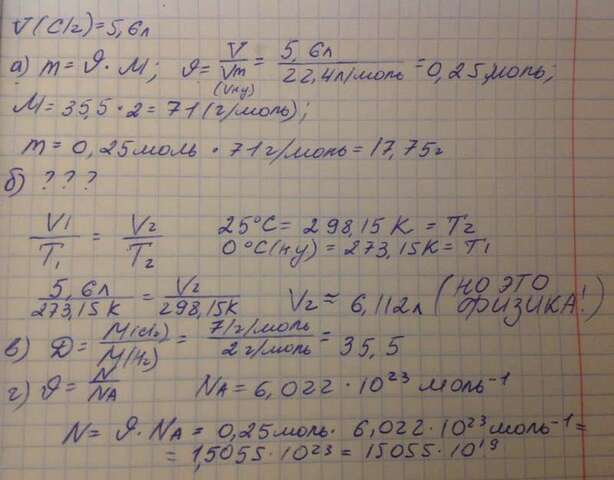 V(Cl2)=5,6л
а) m=ϑ·M; ϑ=V/Vm(Vну)=5,6л/22,4л/моль=0,25моль;
M=35,5·2=71(г/моль);
m=0,25моль·71г/моль=17,75г
б) ???
V1/T1=V2/T2 25°C=298,15K=T2
0°C(ну)=273,15K=T1
5,6л/273,15K=V2/298,15K V2≈6,112л (НО ЭТО ФИЗИКА!)
в) D=M(Cl2)/M(H2)=71г/моль/2г/моль=35,5
г) ϑ=N/NA NA=6,022·10²³моль⁻¹
N=ϑ·NA=0,25моль·6,022·10²³моль⁻¹=
=1,5055·10²³=15055·10¹⁹